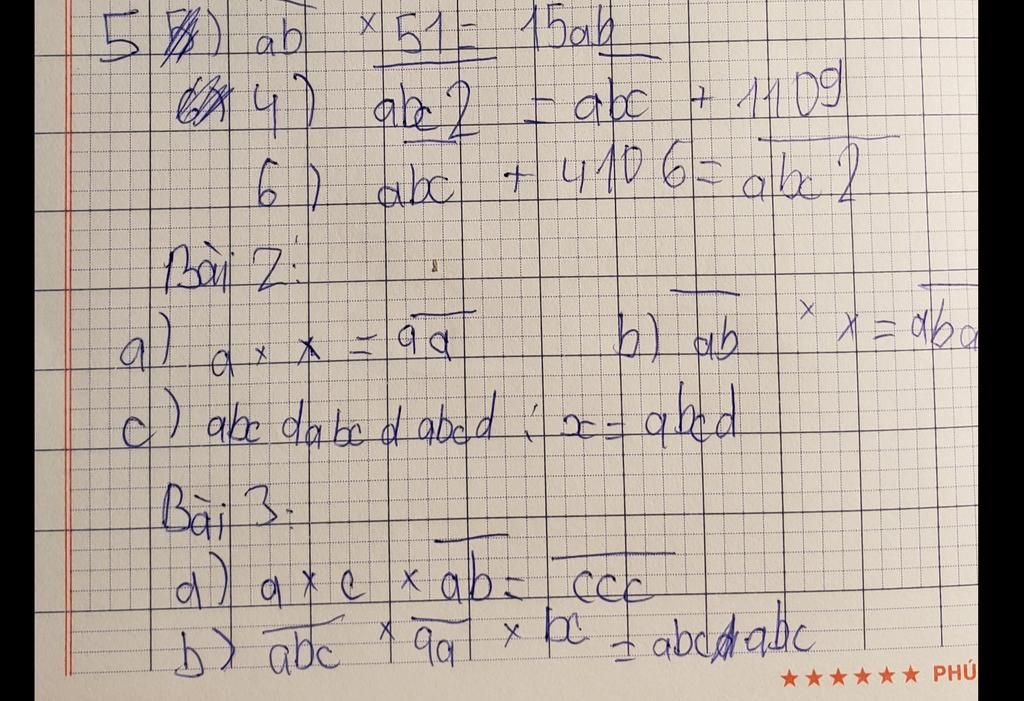 5) ab × 51 = 15ab
4) abc2 = abc + 1109
6) abc + 4106 = abc2
Bài 2:
a) a × x = aa b) ab × x = aba
c) abc dabc d abcd : x = abcd
Bài 3:
a) a × c × ab = ccc
b) abc × aa × bc = abcabc
★★★★★★ PHÚ